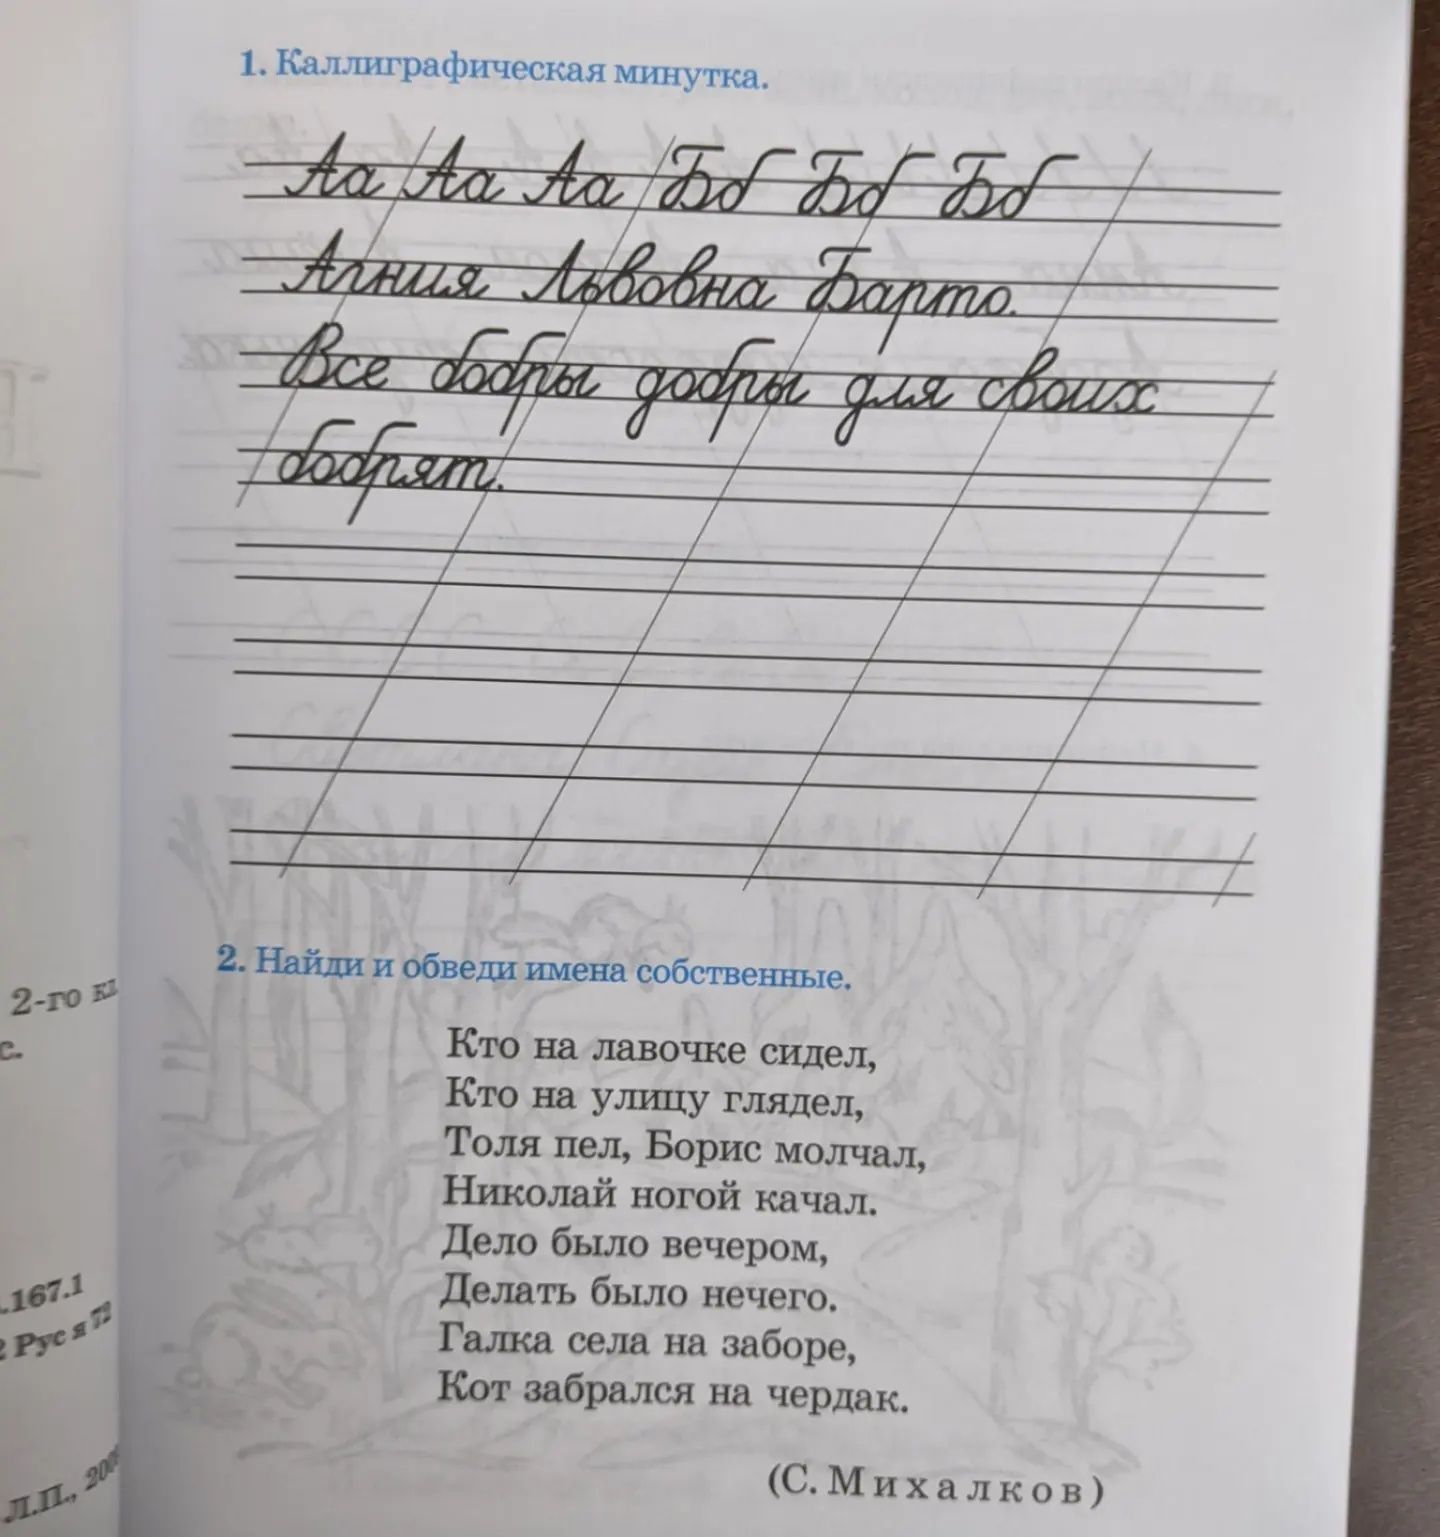 1. Каллиграфическая минутка.
Аа Аа Аа Бб Бб Бб
Агния Львовна Барто.
Все бобры добры для своих
бобрят.
2. Найди и обведи имена собственные.
Кто на лавочке сидел,
Кто на улицу глядел,
Толя пел, Борис молчал,
Николай ногой качал.
Дело было вечером,
Делать было нечего.
Галка села на заборе,
Кот забрался на чердак.
(С. Михалков)
2-го кл
с.
.167.1
2 Рус я 72
Л.П., 200